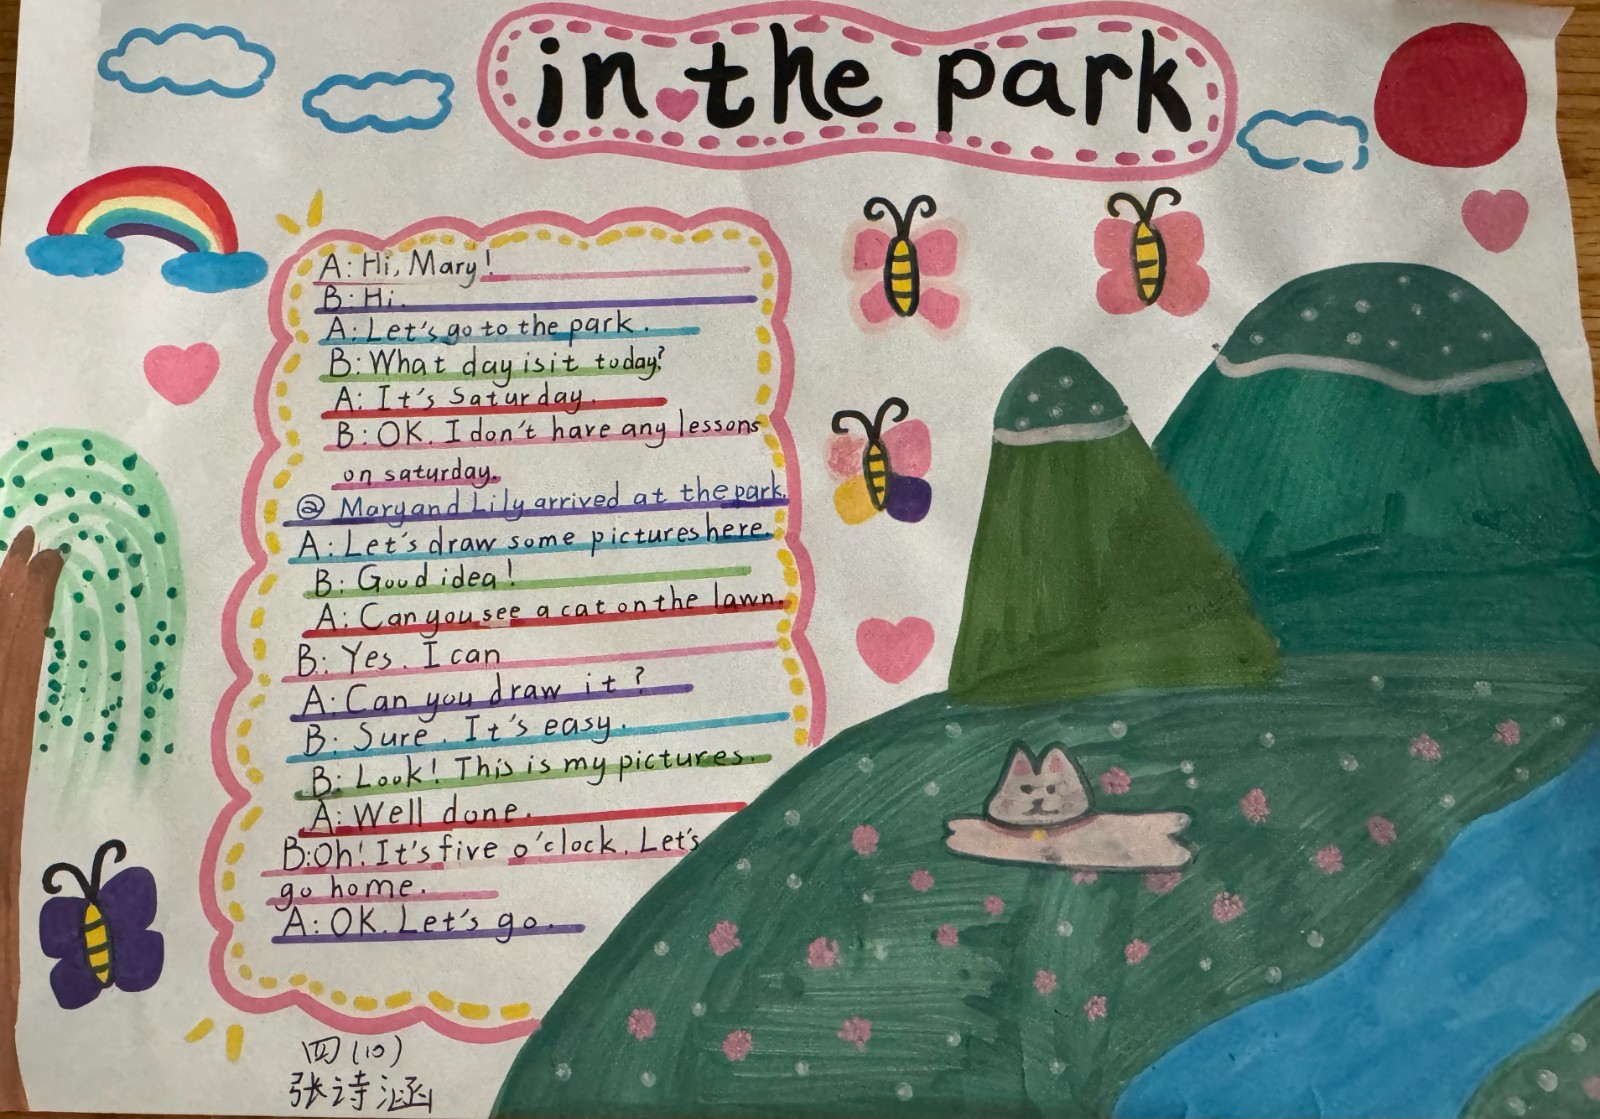 in the park
A: Hi, Mary!
B: Hi.
A: Let's go to the park.
B: What day is it today?
A: It's Saturday.
B: OK. I don't have any lessons
on saturday.
@ Mary and Lily arrived at the park.
A: Let's draw some pictures here.
B: Good idea!
A: Can you see a cat on the lawn.
B: Yes. I can
A: Can you draw it?
B: Sure. It's easy.
B: Look! This is my pictures.
A: Well done.
B: Oh! It's five o'clock. Let's
go home.
A: OK. Let's go.
四(10)
张诗涵